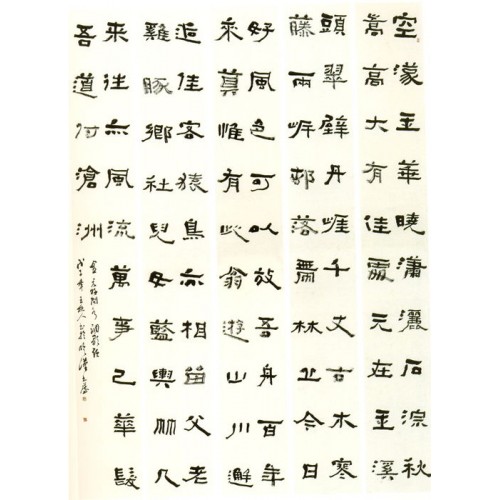 空濛玉華曉瀟灑石淙秋
嵩高大有佳處元在玉溪
頭翠壁丹崖千丈古木寒
藤兩岸邨落帶林丘今日
好風色可以放吾舟百年
來算惟有此翁遊山川邂
逅佳客猿鳥亦相留父老
雞豚鄉社兒女藍輿竹几
來往亦風流萬事已華髮
吾道付滄洲
金元好問水調歌頭